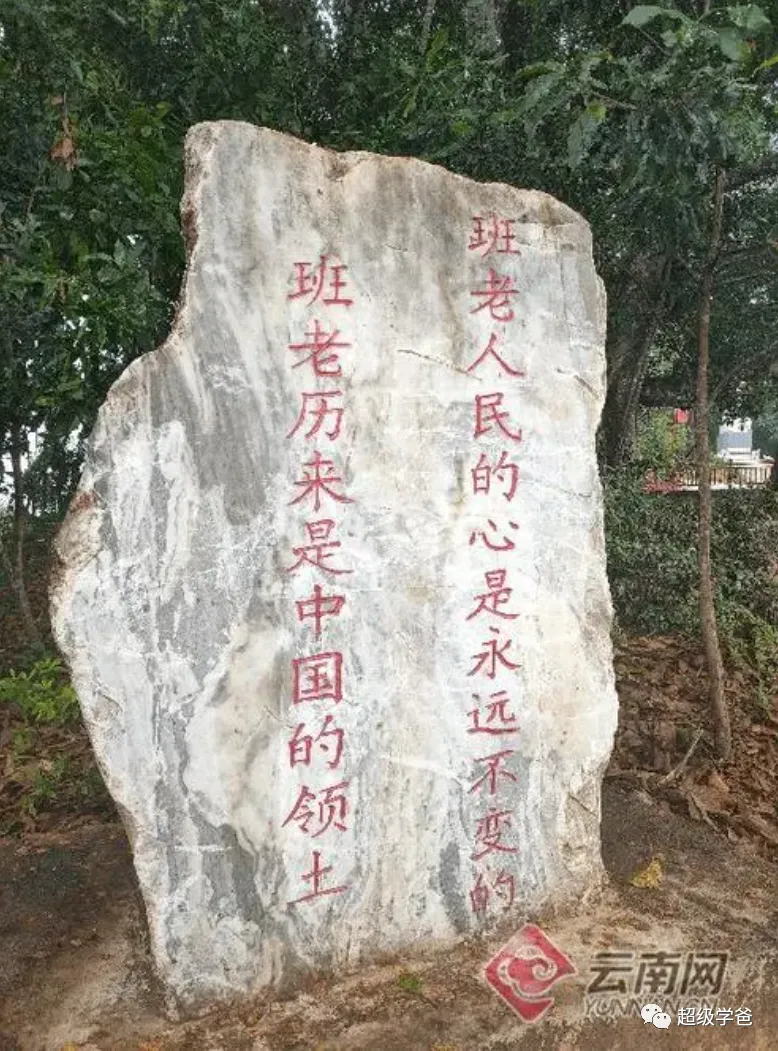 班老人民的心是永远不变的
班老历来是中国的领土
云南网
YUNNAN.CN
超级学爸